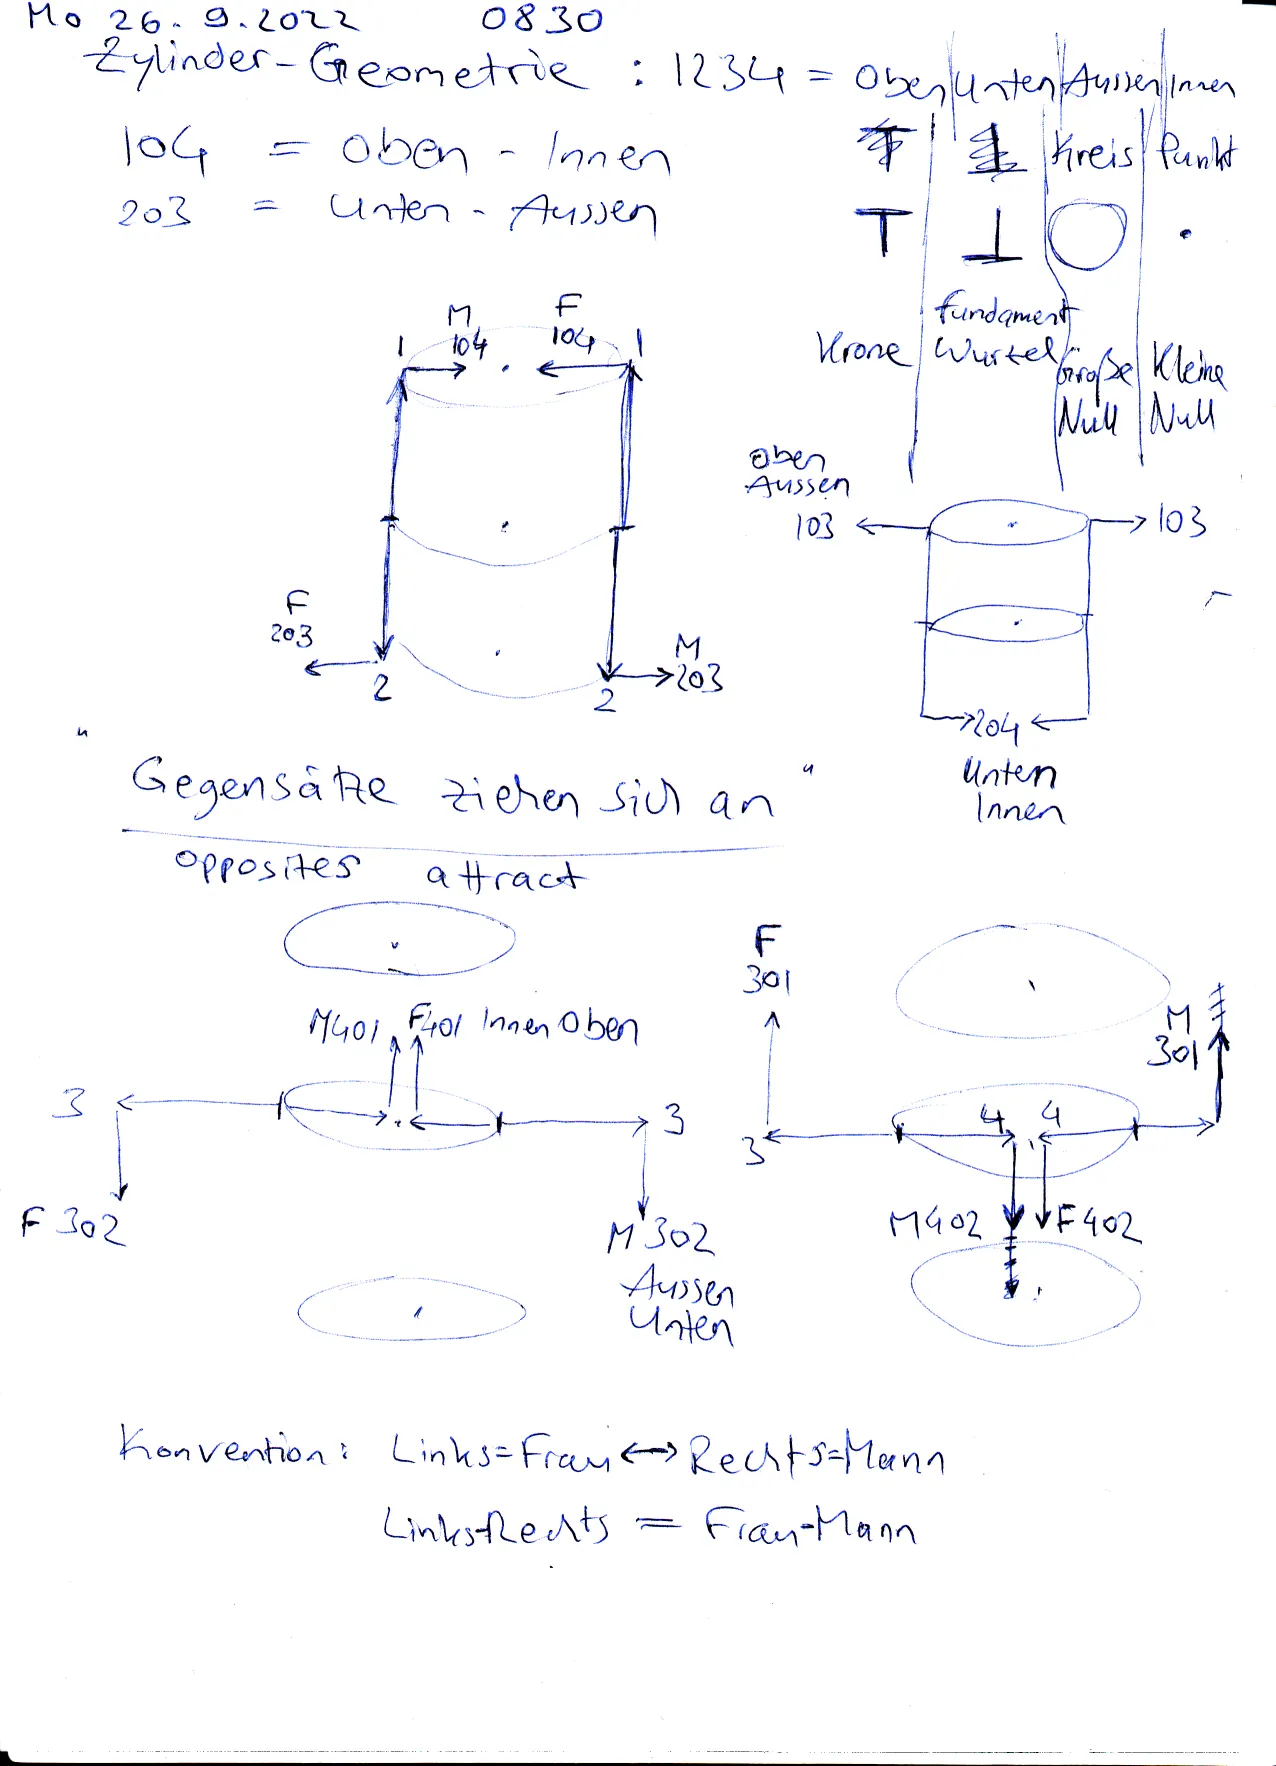 Mo 26.9.2022 0830
Zylinder-Geometrie : 1234 = Oben|Unten|Aussen|Innen
104 = Oben - Innen
203 = Unten - Aussen
Kreis Punkt
T ⊥ ○ •
Krone
Fundament
Wurzel
Große
Null
Kleine
Null
M
104
F
104
1 1
F
203
2 2
M
203
Oben
Aussen
103 103
204
Unten
Innen
"Gegensätze ziehen sich an"
opposites attract
M401 F401 Innen Oben
3 3
F 302
M 302
Aussen
Unten
F
301
M
301
3 4 4
M402 F402
Konvention: Links=Frau ↔ Rechts=Mann
Links-Rechts = Frau-Mann